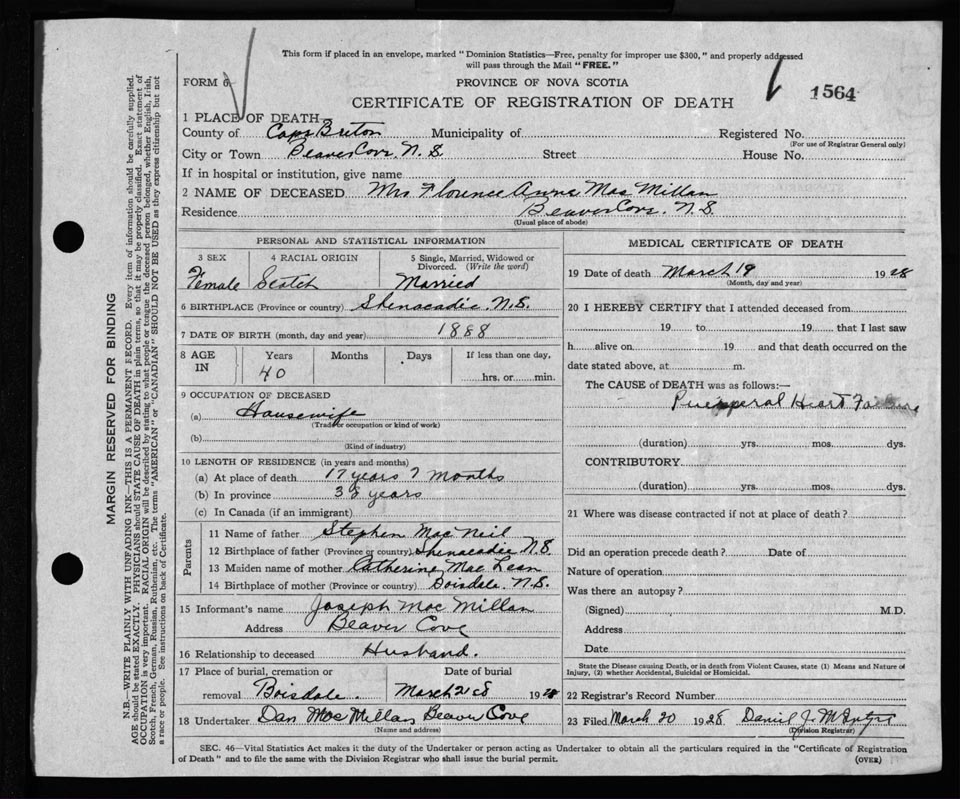 This form if placed in an envelope, marked "Dominion Statistics—Free, penalty for improper use $300," and properly addressed
will pass through the Mail "FREE."
FORM 6
PROVINCE OF NOVA SCOTIA
CERTIFICATE OF REGISTRATION OF DEATH
1564
1 PLACE OF DEATH
County of Cape Breton Municipality of Registered No.
(For use of Registrar General only)
City or Town Beaver Cove N.S. Street House No.
If in hospital or institution, give name
2 NAME OF DECEASED Mrs Florence Anna Mac Millan
Residence Beaver Cove, N.S.
(Usual place of abode)
PERSONAL AND STATISTICAL INFORMATION
3 SEX 4 RACIAL ORIGIN 5 Single, Married, Widowed or
Divorced. (Write the word)
Female Scotch Married
6 BIRTHPLACE (Province or country) Shenacadie, N.S.
7 DATE OF BIRTH (month, day and year) 1888
8 AGE IN Years Months Days If less than one day,
40 hrs. or min.
9 OCCUPATION OF DECEASED
(a) Housewife
(Trade or occupation or kind of work)
(b)
(Kind of industry)
10 LENGTH OF RESIDENCE (in years and months)
(a) At place of death 17 years 7 months
(b) In province 38 years
(c) In Canada (if an immigrant)
Parents
11 Name of father Stephen Mac Neil
12 Birthplace of father (Province or country) Shenacadie N.S.
13 Maiden name of mother Catherine Mac Lean
14 Birthplace of mother (Province or country) Boisdale, N.S.
15 Informant's name Joseph Mac Millan
Address Beaver Cove
16 Relationship to deceased Husband.
17 Place of burial, cremation or Date of burial
removal Boisdale. March 21st 1928
18 Undertaker Dan Mac Millan Beaver Cove
(Name and address)
MEDICAL CERTIFICATE OF DEATH
19 Date of death March 19 1928
(Month, day and year)
20 I HEREBY CERTIFY that I attended deceased from
19 to 19 that I last saw
h alive on 19 and that death occurred on the
date stated above, at m.
The CAUSE of DEATH was as follows:—
Puerperal Heart Failure
(duration) yrs. mos. dys.
CONTRIBUTORY
(duration) yrs. mos. dys.
21 Where was disease contracted if not at place of death?
Did an operation precede death? Date of
Nature of operation
Was there an autopsy?
(Signed) M.D.
Address
Date
State the Disease causing Death, or in death from Violent Causes, state (1) Means and Nature of
Injury, (2) whether Accidental, Suicidal or Homicidal.
22 Registrar's Record Number
23 Filed March 20 1928 Daniel J.
(Division Registrar)
SEC. 46—Vital Statistics Act makes it the duty of the Undertaker or person acting as Undertaker to obtain all the particulars required in the "Certificate of Registration
of Death" and to file the same with the Division Registrar who shall issue the burial permit. (OVER)
MARGIN RESERVED FOR BINDING
N.B.—WRITE PLAINLY WITH UNFADING INK—THIS IS A PERMANENT RECORD. Every item of information should be carefully supplied.
AGE should be stated EXACTLY. PHYSICIANS should STATE CAUSE OF DEATH in plain terms, so that it may be properly classified. Exact statement of
OCCUPATION is very important. RACIAL ORIGIN will be described by stating to what people or tongue the deceased person belonged, whether English, Irish,
Scotch, French, German, Russian, Ruthenian, etc. The terms "AMERICAN" or "CANADIAN" SHOULD NOT BE USED as they express citizenship but not
a race or people. See instructions on back of Certificate.